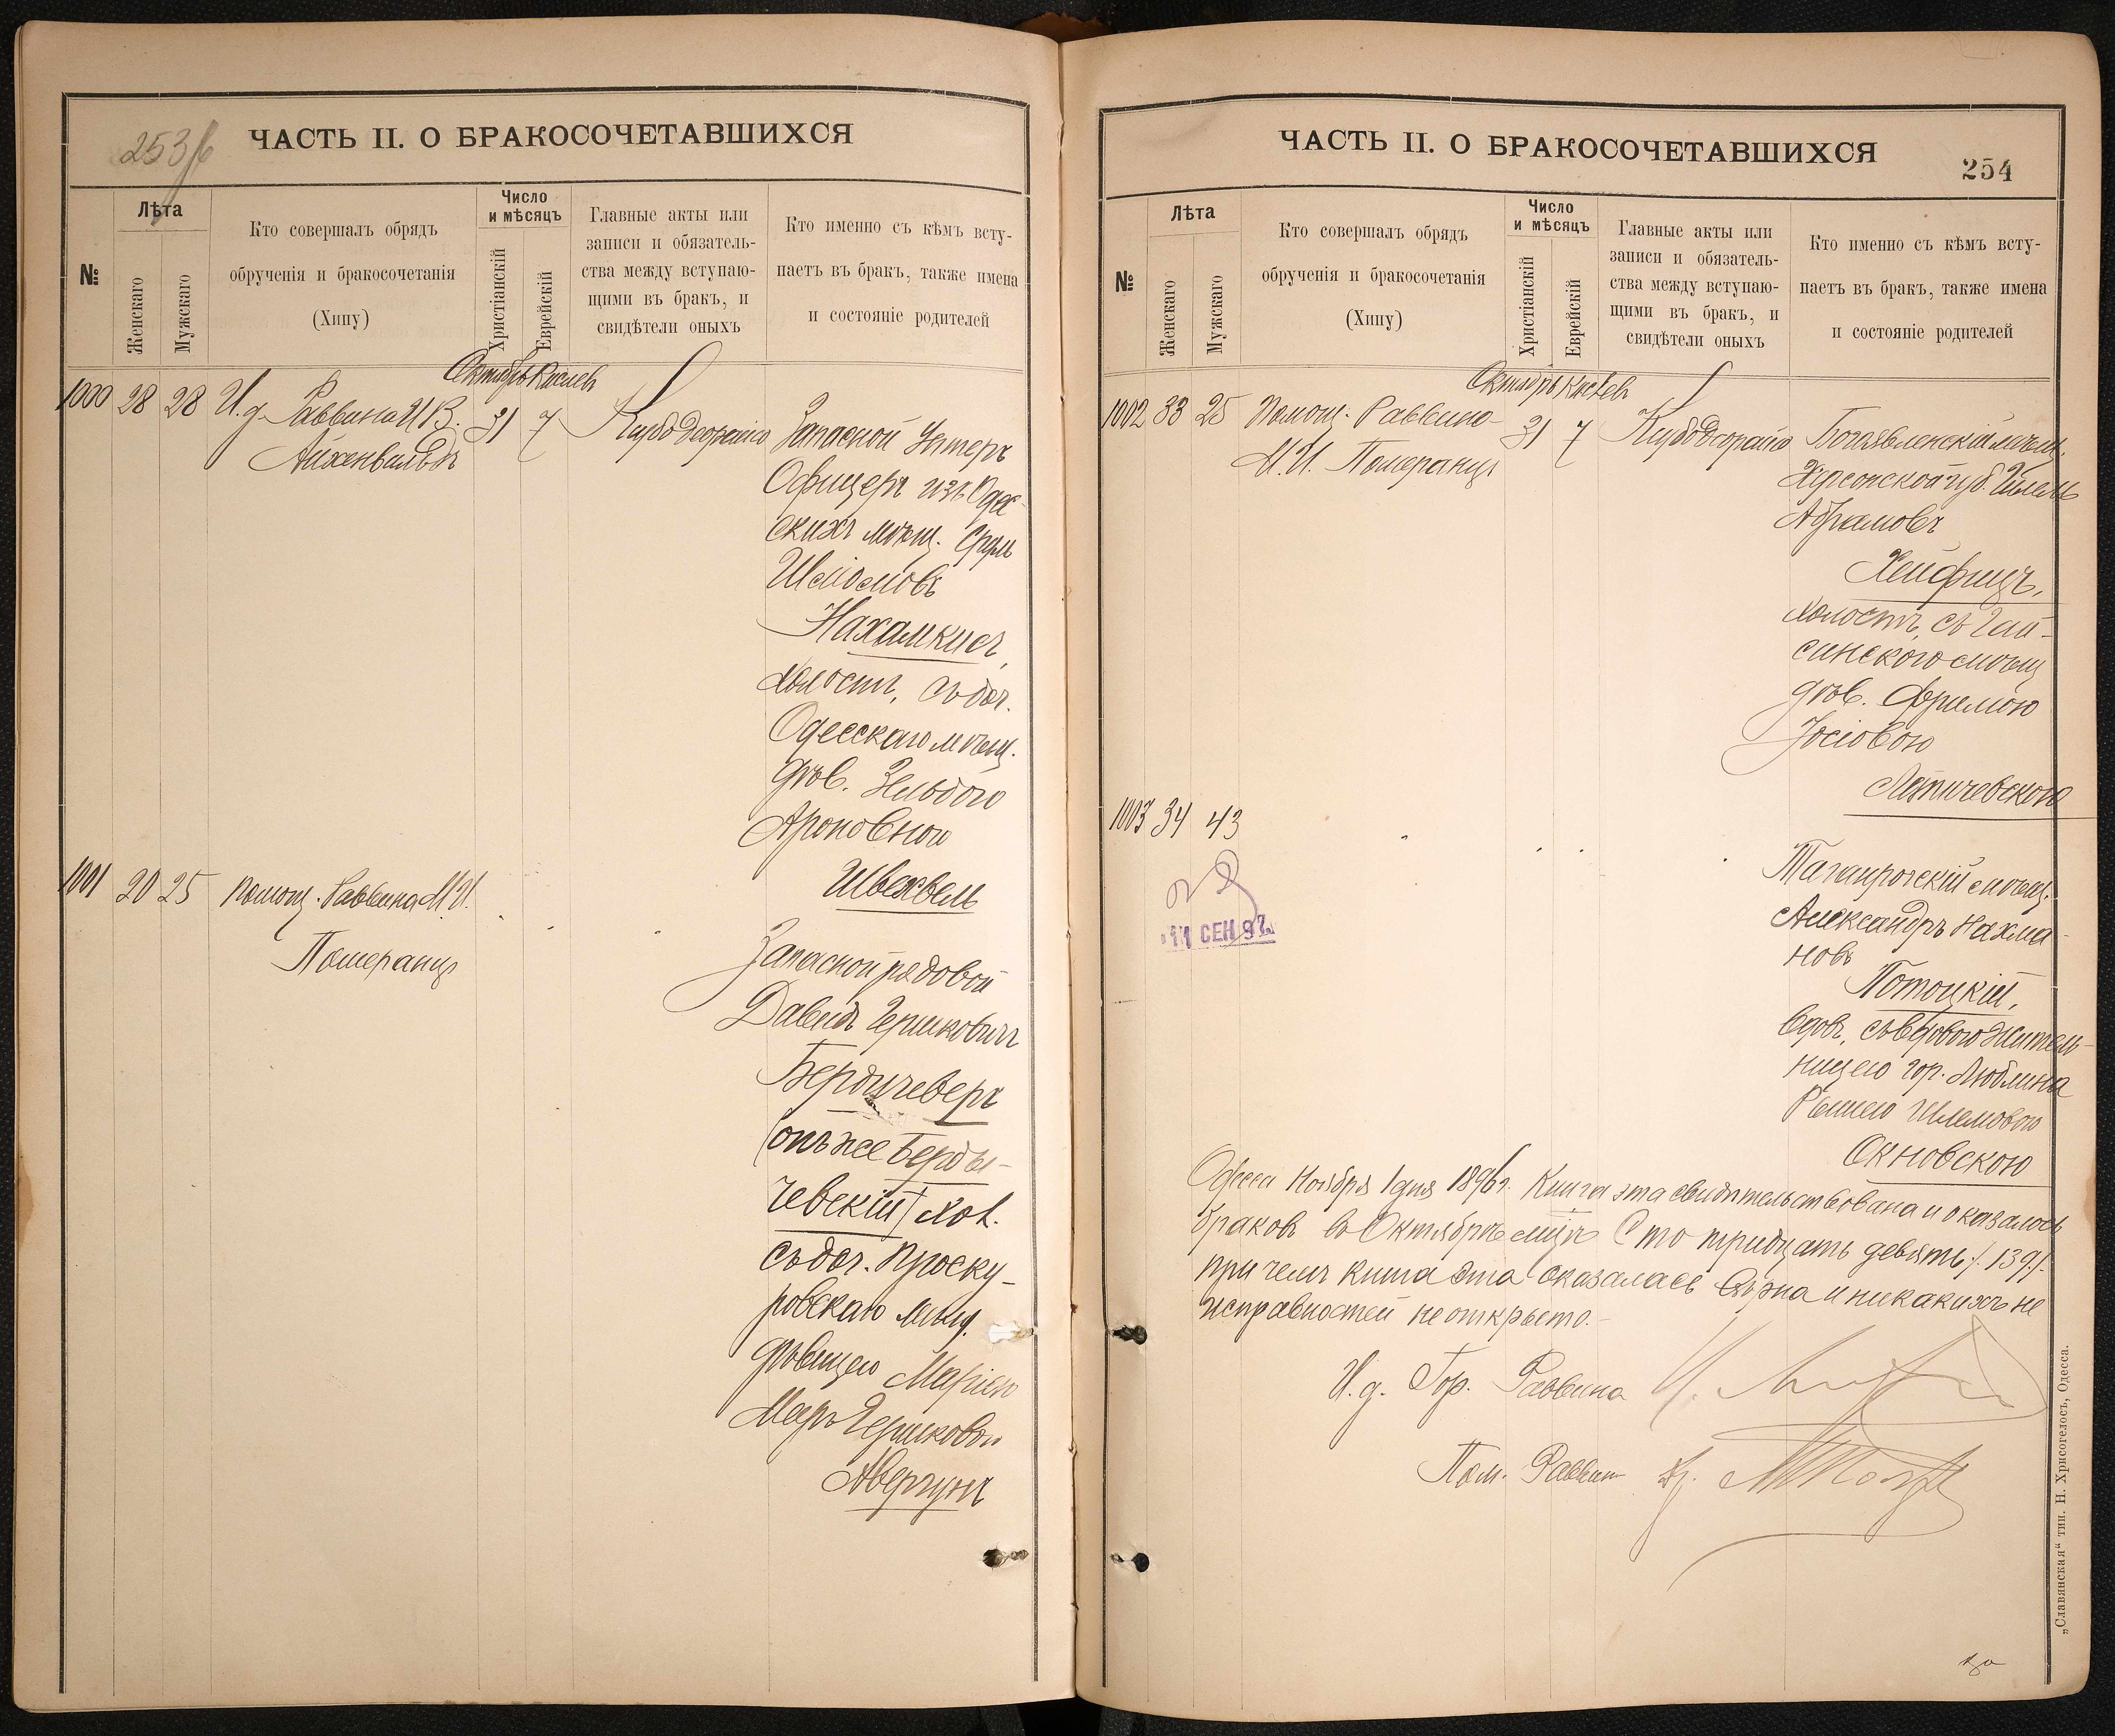 253/б
ЧАСТЬ II. О БРАКОСОЧЕТАВШИХСЯ
№
Лѣта
Женскаго
Мужскаго
Кто совершалъ обрядъ
обрученія и бракосочетанія
(Хипу)
Число
и мѣсяцъ
Христіанскій
Еврейскій
Главные акты или
записи и обязатель-
ства между вступаю-
щими въ бракъ, и
свидѣтели оныхъ
Кто именно съ кѣмъ всту-
паетъ въ бракъ, также имена
и состояніе родителей
Октябрь Кислевъ
1000 28 28 И. д. Раввина И В.
Айхенвальдъ
31 7
Запасной Унтеръ
Офицеръ изъ Одес-
скихъ мѣщ. Сруль
Шліомовъ
Нахамкисъ,
холостъ, съ доч.
Одесскаго мѣщ.
дѣв. Зельдою
Ароновною
Швехвель
1001 20 25 Помощ. Раввина М. И.
Померанцъ
Запасной рядовой
Давидъ Гершковичъ
Бердичеверъ
(онъ же Берды-
чевскій) хол.
съ доч. Проску-
ровскаго мѣщ.
дѣвицею Маріею
Гершковой
Авергунъ
ЧАСТЬ II. О БРАКОСОЧЕТАВШИХСЯ
254
№
Лѣта
Женскаго
Мужскаго
Кто совершалъ обрядъ
обрученія и бракосочетанія
(Хипу)
Число
и мѣсяцъ
Христіанскій
Еврейскій
Главные акты или
записи и обязатель-
ства между вступаю-
щими въ бракъ, и
свидѣтели оныхъ
Кто именно съ кѣмъ всту-
паетъ въ бракъ, также имена
и состояніе родителей
Октябрь Кислевъ
1002 33 25 Помощ. Раввина
М. И. Померанцъ
31 7
Богоявленскій мѣщ.
Херсонской губ.
Абрамовъ
Хейфицъ,
холостъ, съ Гай-
синскою мѣщ
дѣв. Фрумою
Іосіовою
Летичевскою
1003 34 43
11 СЕН 97
Таганрогскій мѣщ.
Александръ Нахма-
новъ
Потоцкій,
вдов, съ вдовою житель-
ницею гор. Люблина
Шлемовою
Окновскою
Одесса Ноября 1 дня 1896 г. Книга эта свидѣтельствована и оказалось
браковъ въ Октябрѣ мцѣ Сто тридцать девять /139/.
при чемъ книга эта оказалась вѣрна и никакихъ не
исправностей не открыто.
И. д. Гор. Раввина
Пом. Раввина Др.
„Славянская“ тип. Н. Хрисогелосъ, Одесса.